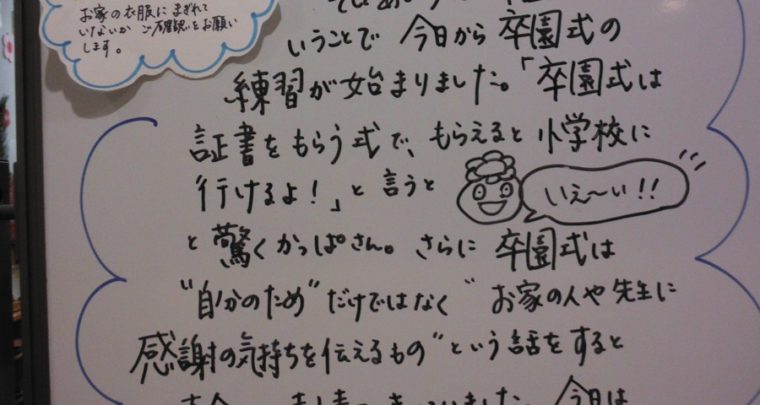 お家の衣服にまぎれて
いないか ご確認をお願い
します。
いうことで 今日から 卒園式の
練習が始まりました。「卒園式は
証書をもらう式で、もらえると小学校に
行けるよ!」と 言うと
いえ～い!!
と 驚くかっぱさん。さらに 卒園式は
"自分のため"だけではなく "お家の人や先生に
感謝の気持ちを伝えるもの"という話をすると
今日は